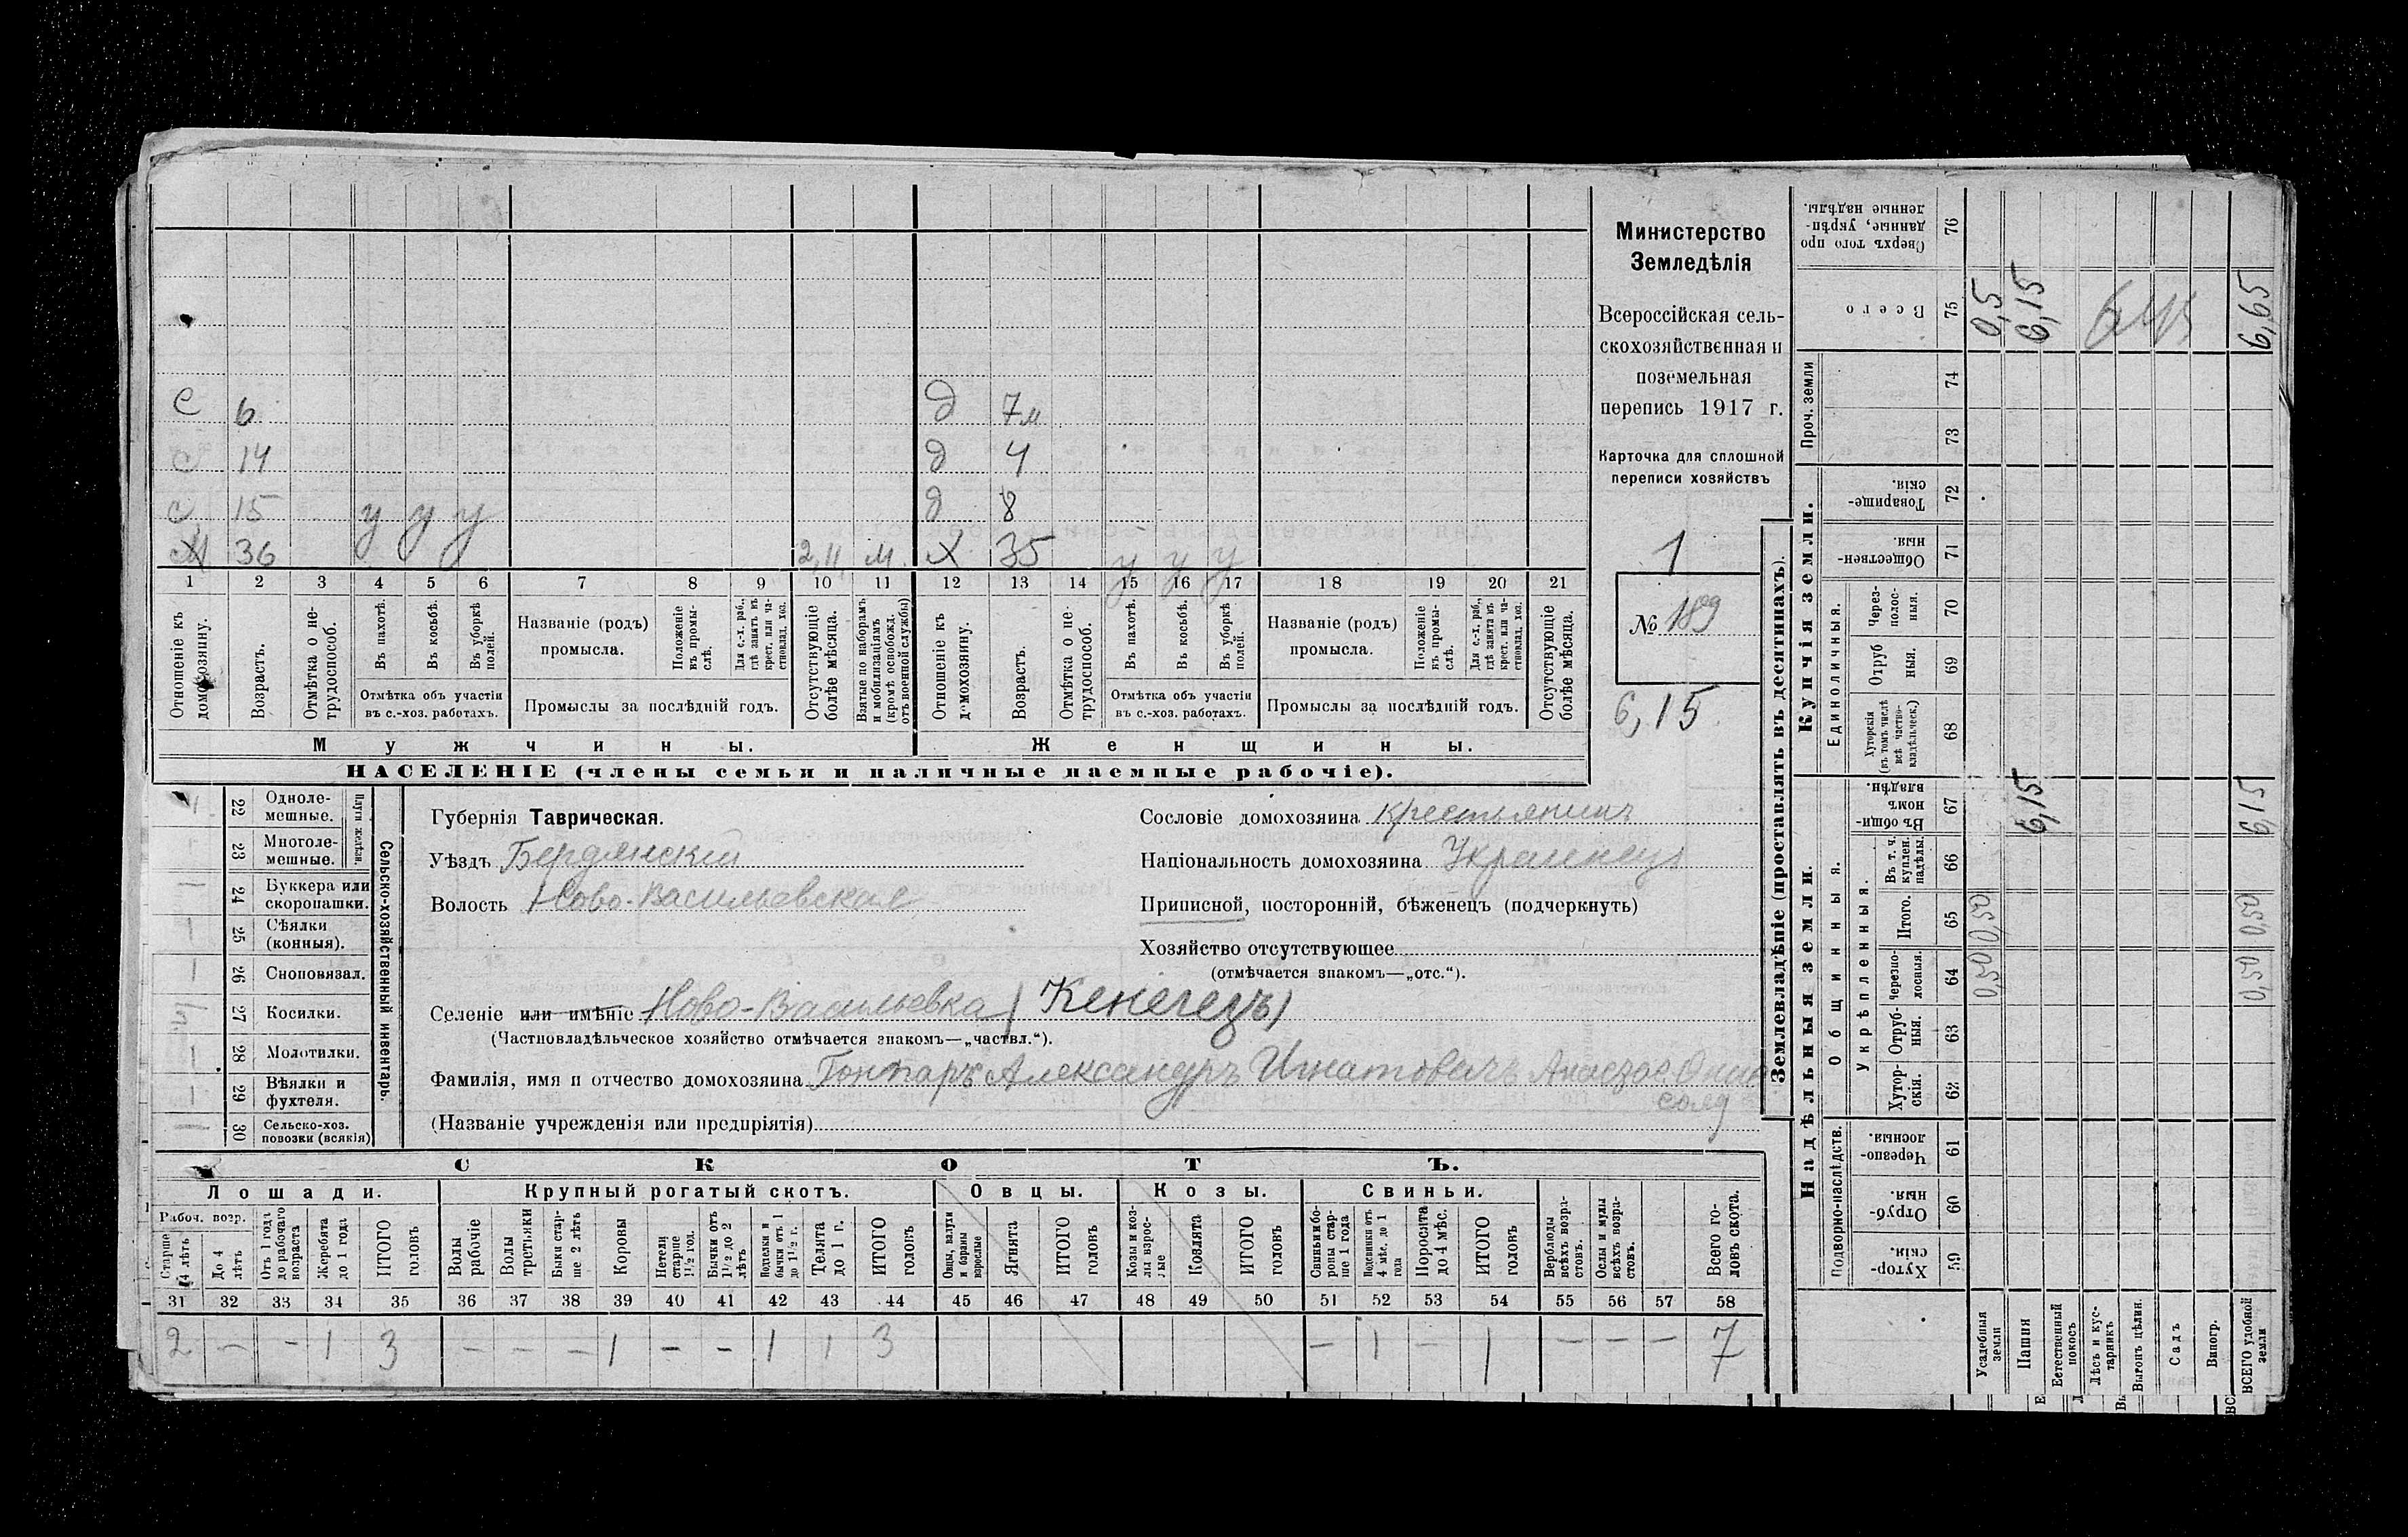 С 6 д 7м
с 14 д 4
с 15 у у у д 8
36 2, м. Х 35 у у у
1 2 3 4 5 6 7 8 9 10 11 12 13 14 15 16 17 18 19 20 21
Отношеніе къ домохозяину.
Возрастъ.
Отмѣтка о не-трудоспособ.
Въ пахотѣ.
Въ косьбѣ.
Въ уборкѣ полей.
Отмѣтка объ участіи въ с.-хоз. работахъ.
Названіе (родъ) промысла.
Положеніе въ промы-слѣ.
Для с.-х. раб., гдѣ занятъ въ крест. или ча-стновлад. хоз.
Промыслы за послѣдній годъ.
Отсутствующіе болѣе мѣсяца.
Взятые по наборамъ и мобилизаціямъ (кромѣ освобожд. отъ военной службы)
Отношеніе къ домохозяину.
Возрастъ.
Отмѣтка о не-трудоспособ.
Въ пахотѣ.
Въ косьбѣ.
Въ уборкѣ полей.
Отмѣтка объ участіи въ с.-хоз. работахъ.
Названіе (родъ) промысла.
Положеніе въ промы-слѣ.
Для с.-х. раб., гдѣ занята въ крест. или ча-стновлад. хоз.
Промыслы за послѣдній годъ.
Отсутствующіе болѣе мѣсяца.
Мужчины. Женщины.
НАСЕЛЕНІЕ (члены семьи и наличные наемные рабочіе).
Министерство
Земледѣлія
Всероссійская сель-
скохозяйственная и
поземельная
перепись 1917 г.
Карточка для сплошной
переписи хозяйствъ
1
№ 189
6,15
22 Одноле-мешные.
23 Многоле-мешные.
Плуги желѣзн.
24 Буккера или скоропашки.
25 Сѣялки (конныя).
26 Сноповязал.
27 Косилки.
28 Молотилки.
29 Вѣялки и фухтеля.
30 Сельско-хоз. повозки (всякія)
Сельско-хозяйственный инвентарь.
Губернія Таврическая.
Уѣздъ Бердянскій
Волость Ново-Васильевская
Сословіе домохозяина крестьянинъ
Національность домохозяина Украинецъ
Приписной, посторонній, бѣженецъ (подчеркнуть)
Хозяйство отсутствующее
(отмѣчается знакомъ—„отс.“).
Селеніе или имѣніе Ново-Васильевка (Кенегезъ)
(Частновладѣльческое хозяйство отмѣчается знакомъ—„частвл.“).
Фамилія, имя и отчество домохозяина Гонтарь Александръ Игнатовичъ
(Названіе учрежденія или предпріятія)
СКОТЪ.
Лошади. Крупный рогатый скотъ. Овцы. Козы. Свиньи.
Рабоч. возр.
Старше 4 лѣтъ
До 4 лѣтъ
Отъ 1 года до рабочаго возраста
Жеребята до 1 года
ИТОГО головъ
Волы рабочіе
Волы третьяки
Быки стар-ше 2 лѣтъ
Коровы
Нетели старше 1½ год.
Бычки отъ 1½ до 2 лѣтъ
Подтелки и бычки отъ 1 до 1½ г.
Телята до 1 г.
ИТОГО головъ
Овцы, валухи и бараны взрослые
Ягнята
ИТОГО головъ
Козы и коз-лы взрос-лые
Козлята
ИТОГО головъ
Свиньи и бо-ровы стар-ше 1 года
Подсвинки отъ 4 мѣс. до 1 года
Поросята до 4 мѣс.
ИТОГО головъ
Верблюды всѣхъ возра-стовъ.
Ослы и мулы всѣхъ возра-стовъ.
Всего го-ловъ скота.
31 32 33 34 35 36 37 38 39 40 41 42 43 44 45 46 47 48 49 50 51 52 53 54 55 56 57 58
2 — - 1 3 — — — 1 - - 1 1 3 — 1 — 1 — — — 7
Землевладѣніе (проставлять въ десятинахъ).
Надѣльныя земли. Купчія земли. Проч. земли
Подворно-наслѣдств. Общинныя. Укрѣпленныя. Единоличныя.
Хутор-скія. 59
Отруб-ныя. 60
Черезпо-лосныя. 61
Хутор-скія. 62
Отруб-ныя. 63
Черезпо-лосныя. 64
Итого. 65
Въ т. ч. куплен. надѣлы. 66
Въ общи-номъ владѣн. 67
Хуторскія (въ томъ числѣ всѣ частно-владѣльческ.) 68
Отруб ныя. 69
Через-полос-ныя. 70
Обществен-ныя. 71
Товарище-скія. 72
73
74
Всего 75
Сверхъ того про данные, укрѣп-ленные надѣлы. 76
Усадебныя земли 0,50 0,50 0,5
Пашня 6,15 6,15
Естественный покосъ
Лѣсъ и кус-тарникъ
Выгонъ цѣлин.
Садъ
Виногр.
ВСЕГО удобной земли 0,50 0,50 6,15 6,65